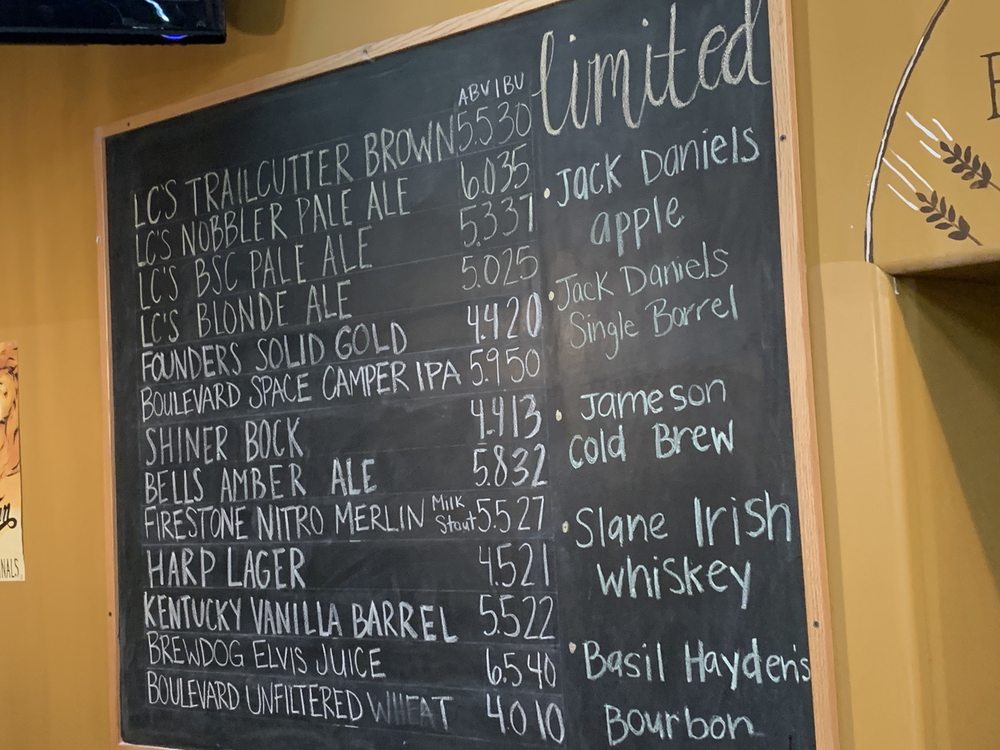 ABV IBU
LC'S TRAILCUTTER BROWN 5.5 30
LC'S NOBBLER PALE ALE 6.0 35
LC'S BSC PALE ALE 5.3 37
LC'S BLONDE ALE 5.0 25
FOUNDERS SOLID GOLD 4.4 20
BOULEVARD SPACE CAMPER IPA 5.9 50
SHINER BOCK 4.4 13
BELLS AMBER ALE 5.8 32
FIRESTONE NITRO MERLIN Milk Stout 5.5 27
HARP LAGER 4.5 21
KENTUCKY VANILLA BARREL 5.5 22
BREWDOG ELVIS JUICE 6.5 40
BOULEVARD UNFILTERED WHEAT 4.0 10
limited
Jack Daniels
apple
Jack Daniels
Single Barrel
Jameson
Cold Brew
Slane Irish
whiskey
Basil Hayden's
Bourbon